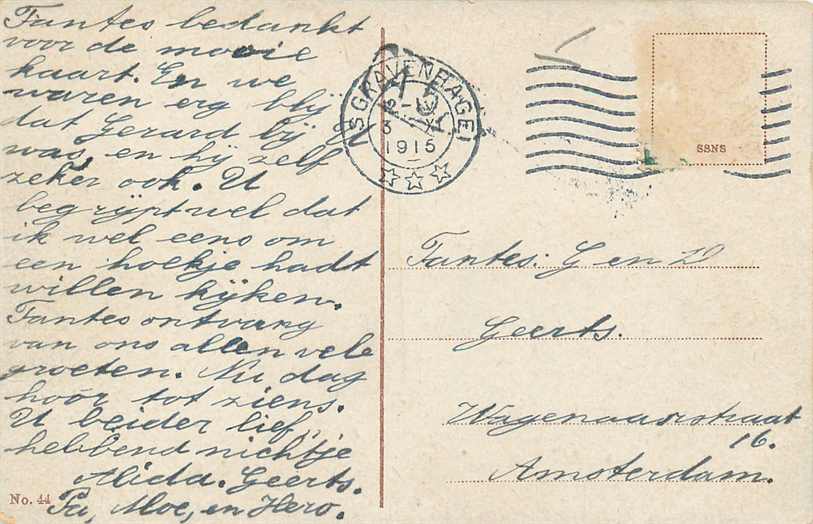 Tantes bedankt
voor de mooie
kaart. En we
waren erg blij
dat Gerard bij
was, en hij zelf
zeker ook. U
begrijpt wel dat
ik wel eens om
een hoekje hadt
willen kijken.
Tantes ontvang
van ons allen vele
groeten. Nu dag
hoor tot ziens.
U beider lief,
hebbend nichtje
Alida. Geerts.
Pa, Moe, en Hero.
No. 44
'S GRAVENHAGE
1915
SSNS
Tantes: G en D
Geerts.
Wagenaarstraat
16.
Amsterdam.